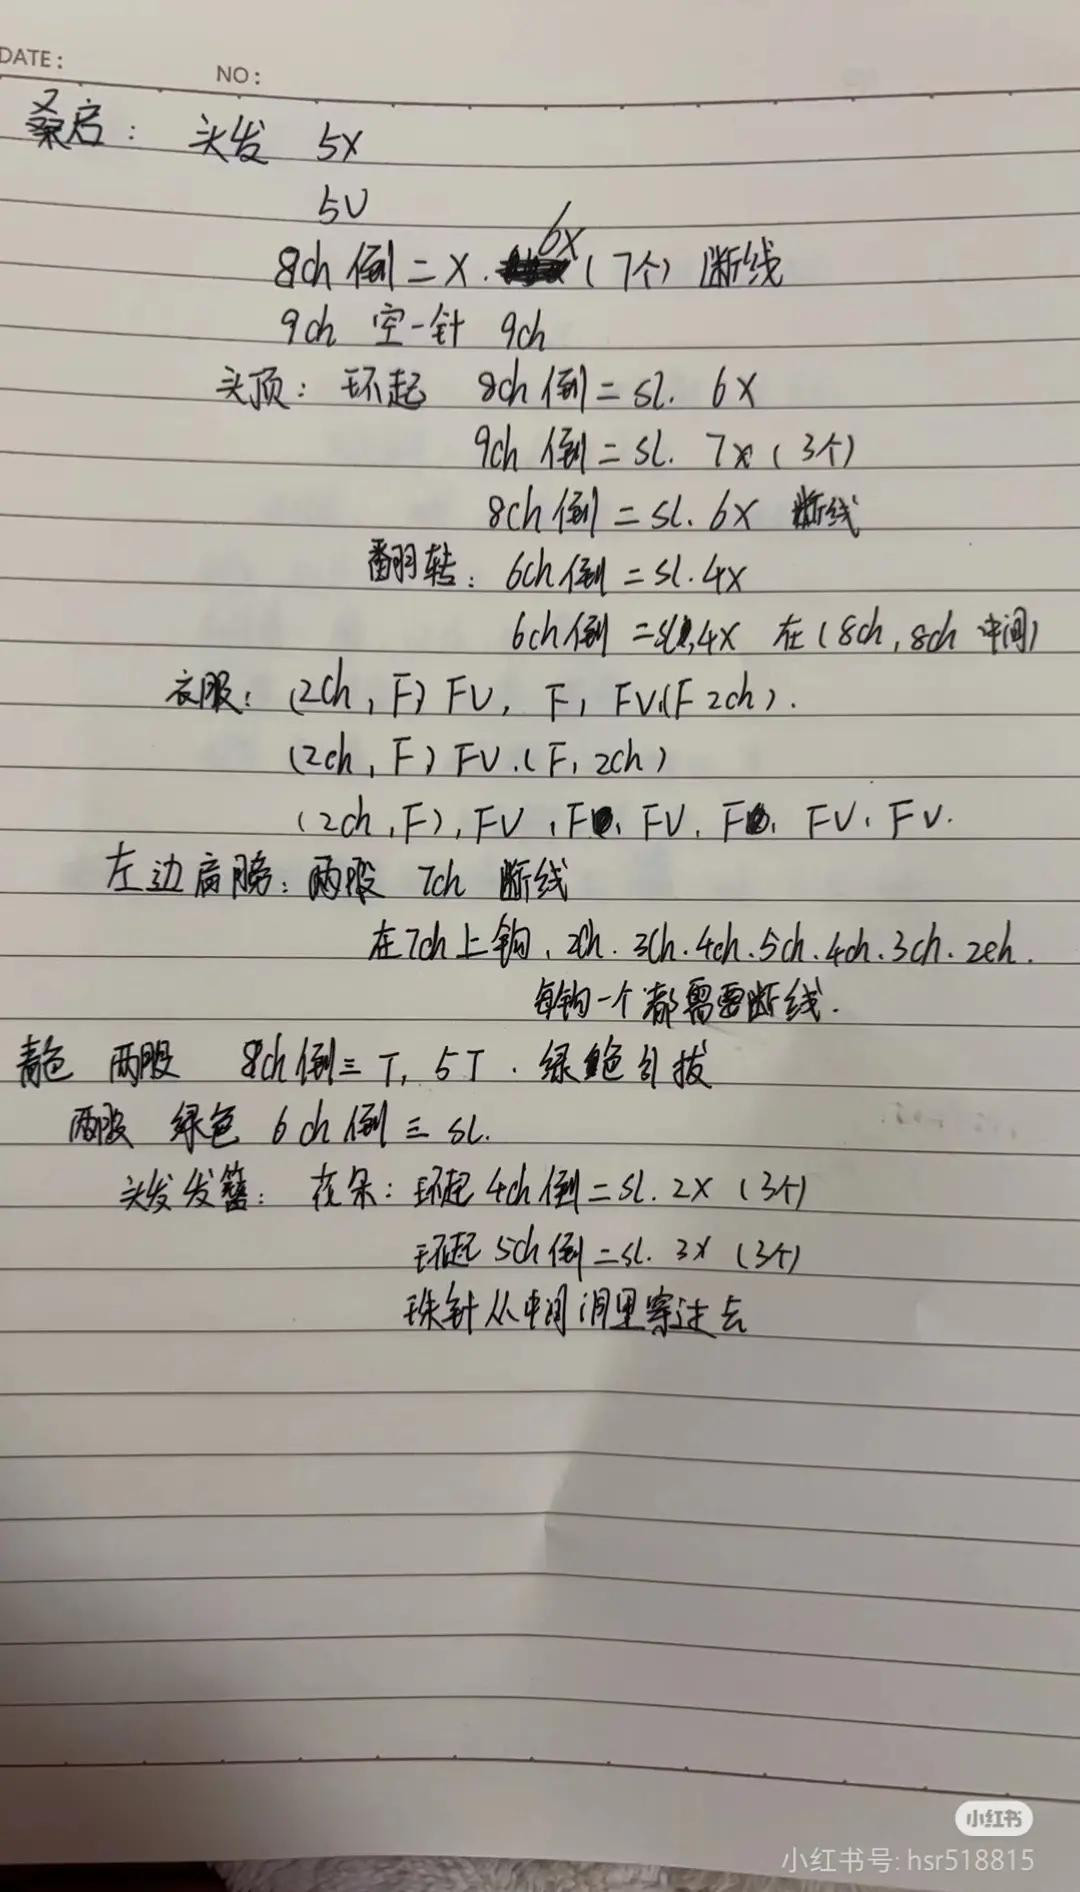 DATE:
NO:
桑启: 头发 5X
5V
8ch 倒二X. 6X (7个) 断线
9ch 空一针 9ch
头顶: 环起 8ch 倒二sl. 6X
9ch 倒二sl. 7x (3个)
8ch 倒二sl. 6X 断线
翻转: 6ch 倒二sl. 4X
6ch 倒二sl. 4X 在(8ch, 8ch 中间)
衣服: (2ch, F) FV, F, FV.(F 2ch).
(2ch, F) FV.(F, 2ch)
(2ch, F), FV, F, FV, F, FV, FV.
左边肩膀: 两股 7ch 断线
在7ch上钩. 2ch. 3ch. 4ch. 5ch. 4ch. 3ch. 2ch.
每钩一个都需要断线.
青色 两股 8ch 倒三T, 5T. 绿色引拔
两股 绿色 6ch 倒三sl.
头发发簪: 花朵: 环起 4ch 倒二sl. 2X (3个)
环起 5ch 倒二sl. 3X (3个)
珠针从中间洞里穿过去
小红书
小红书号: hsr518815